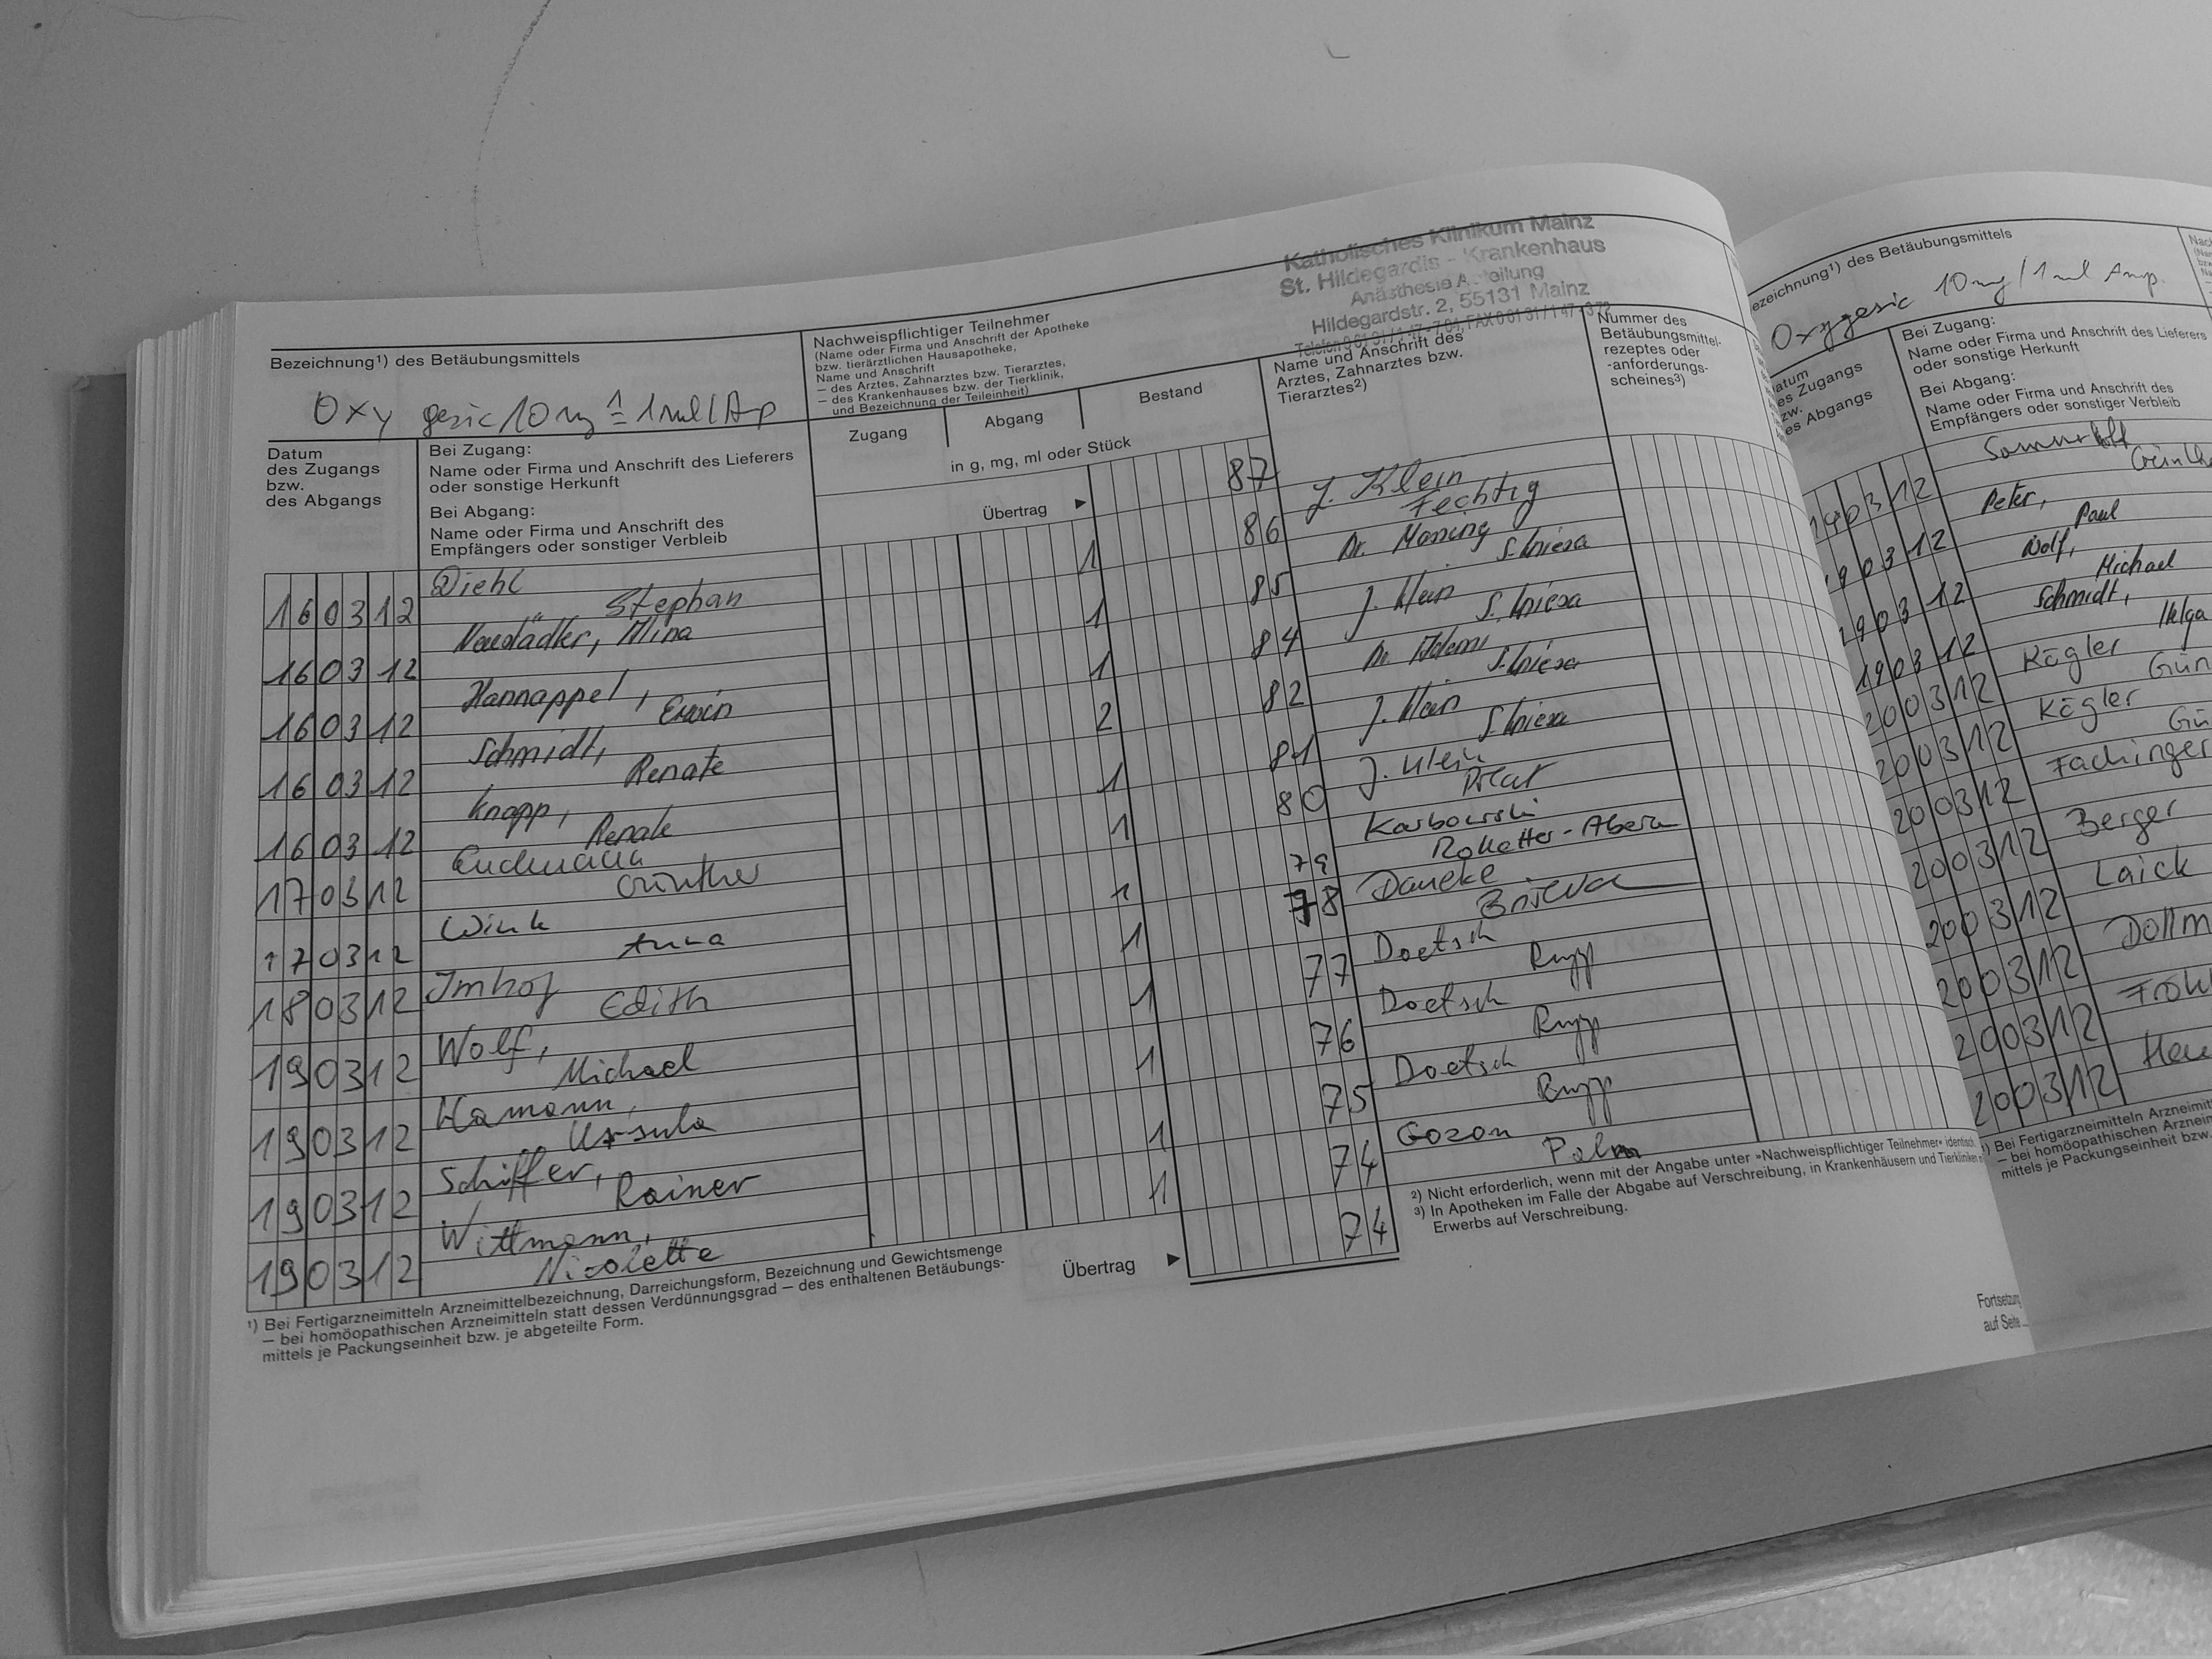 Katholisches Klinikum Mainz
St. Hildegardis - Krankenhaus
Anästhesie Abteilung
Hildegardstr. 2, 55131 Mainz
Bezeichnung¹) des Betäubungsmittels
Oxygesic 10 mg ≙ 1 ml/Ap
Nachweispflichtiger Teilnehmer
(Name oder Firma und Anschrift der Apotheke
bzw. tierärztlichen Hausapotheke,
Name und Anschrift
– des Arztes, Zahnarztes bzw. Tierarztes,
– des Krankenhauses bzw. der Tierklinik,
und Bezeichnung der Teileinheit)
Datum
des Zugangs
bzw.
des Abgangs
Bei Zugang:
Name oder Firma und Anschrift des Lieferers
oder sonstige Herkunft
Bei Abgang:
Name oder Firma und Anschrift des
Empfängers oder sonstiger Verbleib
Zugang
Abgang
Bestand
in g, mg, ml oder Stück
Übertrag ► 87
Name und Anschrift des
Arztes, Zahnarztes bzw.
Tierarztes²)
Nummer des
Betäubungsmittel-
rezeptes oder
-anforderungs-
scheines³)
160312 Diehl Stephan 1 86 J. Klein Fechtig
160312 Neustädter, Mina 1 85 Dr.
160312 Hannappel, Erwin 1 84 J. Klein
160312 Schmidt, Renate 2 82 Dr.
160312 Knapp, Renate 1 81 J. Klein
170312 Günther 1 80 J. Klein Polat
170312 Wink Anna 1 79 Karbowski
180312 Imhof Edith 1 78 Daneke
190312 Wolf, Michael 1 77 Doetsch Rupp
190312 Hamann, Ursula 1 76 Doetsch Rupp
190312 Schiffer, Rainer 1 75 Doetsch Rupp
190312 Wittmann, Nicolette 1 74 Gozon Palm
Übertrag ► 74
¹) Bei Fertigarzneimitteln Arzneimittelbezeichnung, Darreichungsform, Bezeichnung und Gewichtsmenge
– bei homöopathischen Arzneimitteln statt dessen Verdünnungsgrad – des enthaltenen Betäubungs-
mittels je Packungseinheit bzw. je abgeteilte Form.
²) Nicht erforderlich, wenn mit der Angabe unter »Nachweispflichtiger Teilnehmer« identisch.
³) In Apotheken im Falle der Abgabe auf Verschreibung, in Krankenhäusern und Tierkliniken
Erwerbs auf Verschreibung.
Fortsetzung
auf Seite
ezeichnung¹) des Betäubungsmittels
Oxygesic 10mg/1ml Amp.
atum
es Zugangs
zw.
es Abgangs
Bei Zugang:
Name oder Firma und Anschrift des Lieferers
oder sonstige Herkunft
Bei Abgang:
Name oder Firma und Anschrift des
Empfängers oder sonstiger Verbleib
190312
190312 Peter, Paul
190312 Wolf, Michael
190312 Schmidt, Helga
200312 Kögler Gün
200312 Kögler Gü
200312 Fachinger
200312 Berger
200312 Laick
200312 Dollm
200312 Fröhl
200312
¹) Bei Fertigarzneimitteln Arzneimit
– bei homöopathischen Arznein
mittels je Packungseinheit bzw.